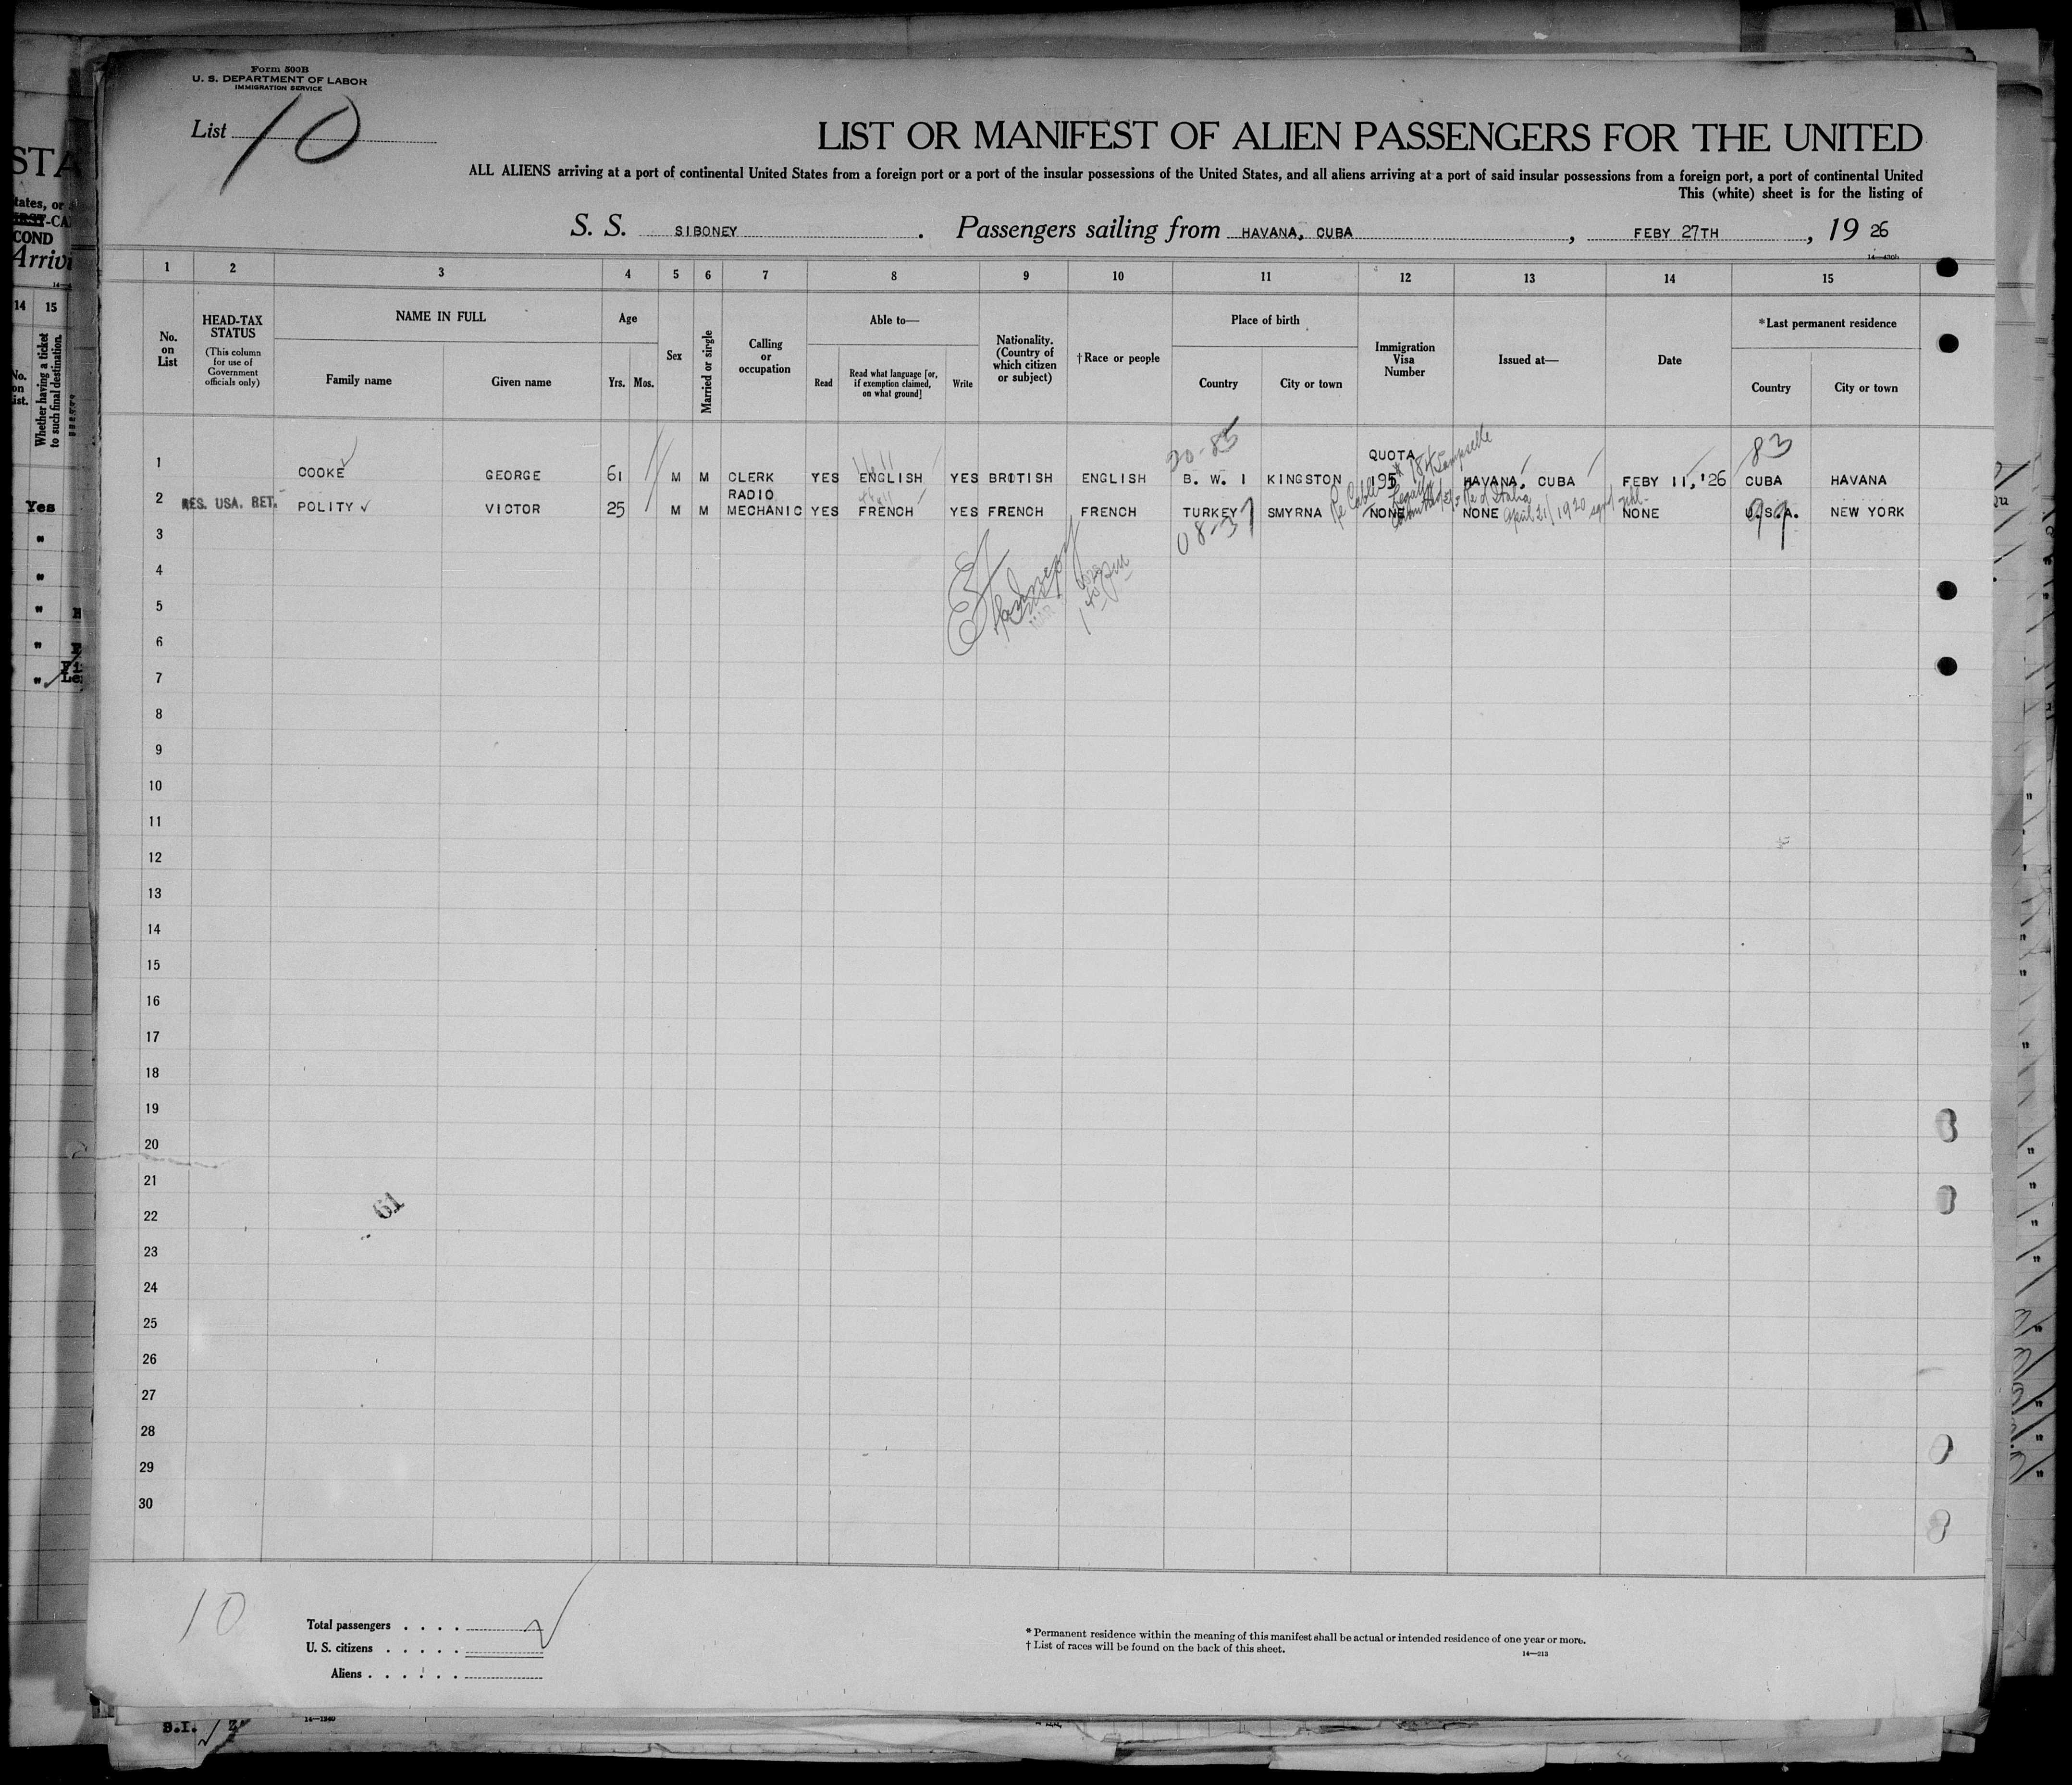 Form 500B
U. S. DEPARTMENT OF LABOR
IMMIGRATION SERVICE
List 10
LIST OR MANIFEST OF ALIEN PASSENGERS FOR THE UNITED
ALL ALIENS arriving at a port of continental United States from a foreign port or a port of the insular possessions of the United States, and all aliens arriving at a port of said insular possessions from a foreign port, a port of continental United
This (white) sheet is for the listing of
S. S. SIBONEY . Passengers sailing from HAVANA, CUBA , FEBY 27TH , 19 26
1 2 3 4 5 6 7 8 9 10 11 12 13 14 15
No. on List
HEAD-TAX STATUS
(This column for use of Government officials only)
NAME IN FULL
Family name
Given name
Age
Yrs. Mos.
Sex
Married or single
Calling or occupation
Able to—
Read
Read what language [or, if exemption claimed, on what ground]
Write
Nationality. (Country of which citizen or subject)
†Race or people
Place of birth
Country
City or town
Immigration Visa Number
Issued at—
Date
*Last permanent residence
Country
City or town
20-83
83
QUOTA
1 COOKE GEORGE 61 M M CLERK YES ENGLISH YES BRITISH ENGLISH B. W. I KINGSTON 195 HAVANA, CUBA FEBY 11,'26 CUBA HAVANA
RADIO
2 RES. USA. RET. POLITY VICTOR 25 M M MECHANIC YES FRENCH YES FRENCH FRENCH TURKEY SMYRNA NONE NONE NONE U.S.A. NEW YORK
08-37
99
3
4
5
6
7
8
9
10
11
12
13
14
15
16
17
18
19
20
21
22
23
24
25
26
27
28
29
30
61
10
Total passengers . . . . 2
U. S. citizens . . . . .
Aliens . . . . . .
* Permanent residence within the meaning of this manifest shall be actual or intended residence of one year or more.
† List of races will be found on the back of this sheet.
14—213
STA
14 15
Whether having a ticket to such final destination.
Yes
S.I.
14—1240